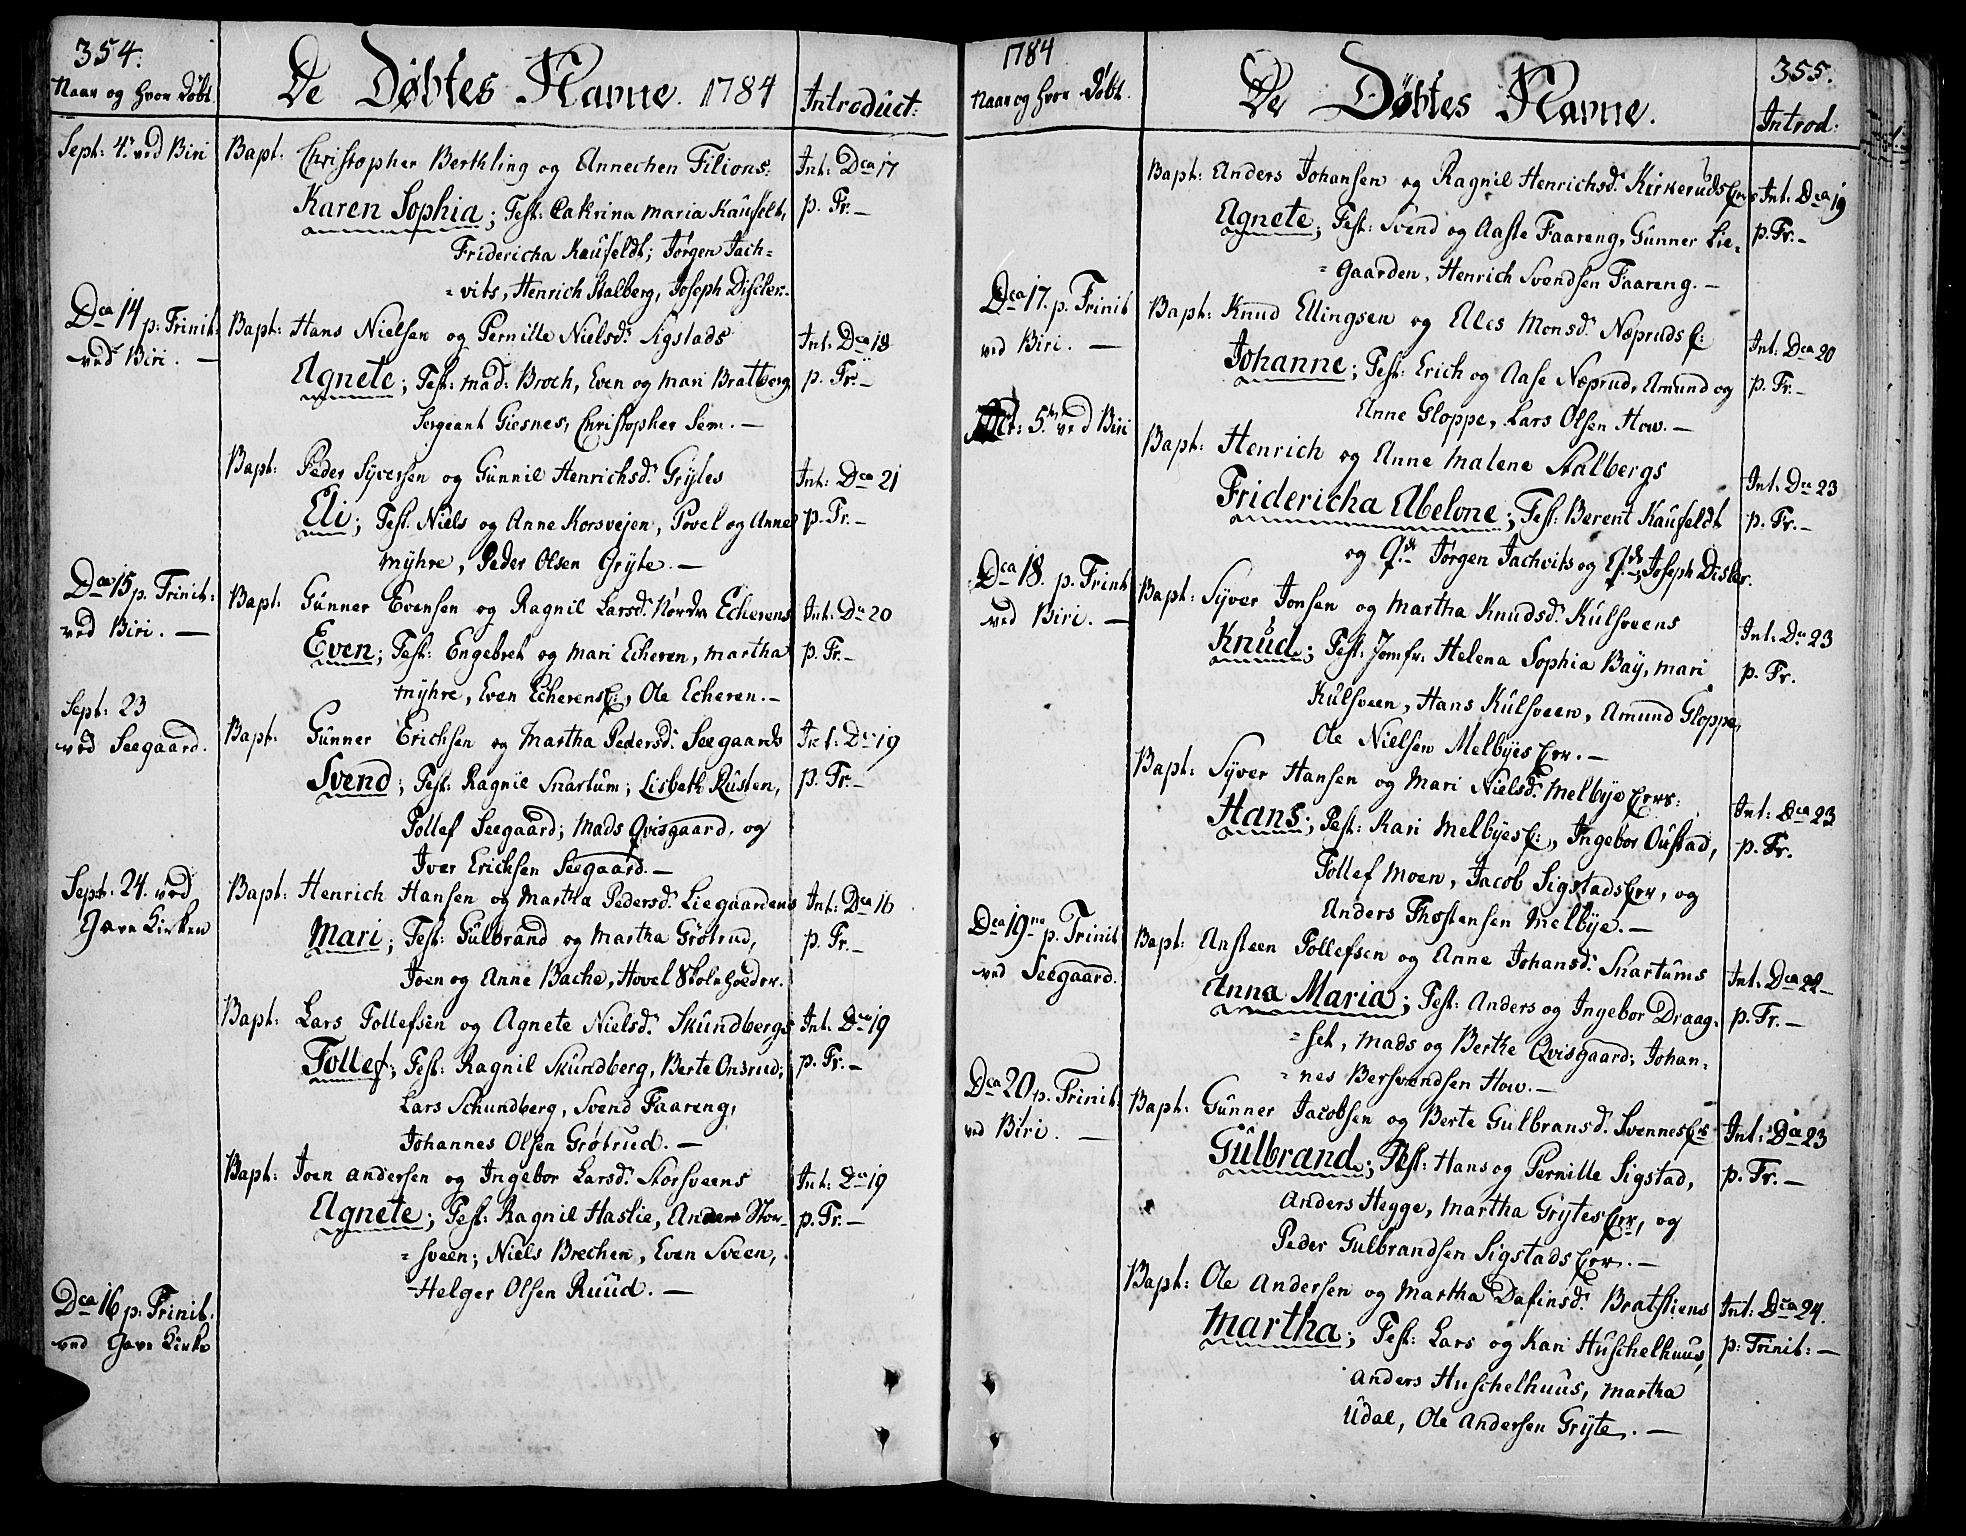 354.
Naar og hvor Døbt.
De Døbtes Navne. 1784
Introduct:
Sept: 4. ved Biri
Bapt. Christopher Berthling og Annechen Filions:
Int: Dca 17
Karen Sophia; Test: Cathrina Maria Kaufeldt,
p. Fr. —
Fridericha Kaufeldt; Jørgen Jach=
=vits, Henrich Stalberg, Joseph Disler. -
Dca 14 p: Trinit:
ved Biri. —
Bapt: Hans Nielsen og Pernille Nielsd. Sigstads
Int: Dca 18
Agnete; Test: Mad: Broch, Even og Mari Bratberg,
p. Fr. —
Sergeant Giesnes, Christopher Sem. —
Bapt: Peder Syversen og Gunnil Henrichsd. Grytes
Int: Dca 21
Eli; Test: Niels og Anne Korsvejen, Povel og Anne
p. Fr. —
Myhre, Peder Olsen Gryte. —
Dca 15 p. Trinit:
ved Biri. —
Bapt. Gunner Evensen og Ragnil Larsd. Nordre Echerens
Int: Dca 20
Even; Test: Engebret og Mari Echeren, Martha
p. Fr. —
Myhre, Even Echerens E:, Ole Echeren. —
Sept: 23
ved Seegaard.
Bapt. Gunner Ericksen og Martha Pedersd. Seegaards
Int: Dca 19
Svend; Test: Ragnil Snartum; Lisbeth Rusten,
p. Fr. —
Tollef Seegaard; Mads Qvisgaard, og
Iver Ericksen Seegaard. —
Sept. 24. ved
Gave Kirken
Bapt: Henrich Hansen og Martha Pedersd. Liegaardens
Int: Dca 16
Mari; Test: Gulbrand og Martha Grøtrud,
p. Fr. —
Joen og Anne Bache, Hovel Skoleholder.
Bapt: Lars Tollefsen og Agnete Nielsd. Skundbergs
Int: Dca 19
Tollef; Test: Ragnil Skundberg, Berte Onsrud;
p. Fr. —
Lars Schundberg, Svend Faareng,
Johannes Olsen Grøtrud. —
Bapt: Joen Andersen og Ingebor Larsd. Storsveens
Int: Dca 19
Agnete; Test: Ragnil Haslie, Anders Stor=
p. Fr. —
=sveen; Niels Brechen, Even Sveen,
Helger Olsen Ruud. —
Dca 16 p: Trinit:
ved Gave Kirke
1784
Naar og hvor Døbt.
De Døbtes Navne.
355.
Introd:
Bapt: Anders Johansen og Ragnil Henrichsd. Kirkeruds Ers
Int: Dca 19
Agnete; Test: Svend og Aaste Faareng, Gunner Lie=
p. Fr. —
=gaarden, Henrich Svendsen Faareng. —
Dca 17. p. Trinit
ved Biri. —
Bapt: Knud Ellingsen og Elles Monsd. Næpruds E:
Int: Dca 20
Johanne; Test: Erich og Aase Næprud, Amund og
p. Fr. —
Anne Gloppe, Lars Olsen How. —
Oct: 5. ved Biri
Bapt: Henrich og Anne Malene Stalbergs
Int: Dca 23
Fridericha Abelone; Test: Berent Kaufeldt
p. Fr. —
og Jørgen Jachvits og Joseph Disler.
Dca 18. p. Trinit
ved Biri. —
Bapt: Syver Jonsen og Martha Knudsd. Kulsveens
Int: Dca 23
Knud; Test: Jomfr: Helena Sophia Bay, Mari
p. Fr.
Kulsveen, Hans Kulsveen, Amund Gloppe,
Ole Nielsen Melbyes Err. —
Bapt: Syver Hansen og Mari Nielsd. Melbye Errs:
Int: Dca 23
Hans; Test: Kari Melbyes E:, Ingebor Oustad,
p. Fr.
Tollef Moen, Jacob Sigstads Err, og
Anders Thostensen Melbye. —
Dca 19ne p. Trinit
ved Seegaard.
Bapt: Ansteen Tollefsen og Anne Johansd. Snartums
Int: Dca 22 —
Anna Maria; Test: Anders og Ingebor Draag=
p. Fr. —
=set, Mads og Berthe Qvisgaard; Johan=
=nes Bersvendsen How. —
Dca 20 p. Trinit:
ved Biri. —
Bapt: Gunner Jacobsen og Berte Gulbransd. Svennes Ers
Int: Dca 23
Gulbrand; Test: Hans og Pernille Sigstad,
p. Fr. —
Anders Hegge, Martha Grytes Err, og
Peder Gulbrandsen Sigstads Err. —
Bapt: Ole Andersen og Martha Dafinsd. Bratliens
Int: Dca 24.
Martha; Test: Lars og Kari Huschelhuus,
p: Trinit: —
Anders Huschelhuus, Martha
Udal, Ole Andersen Gryte. —